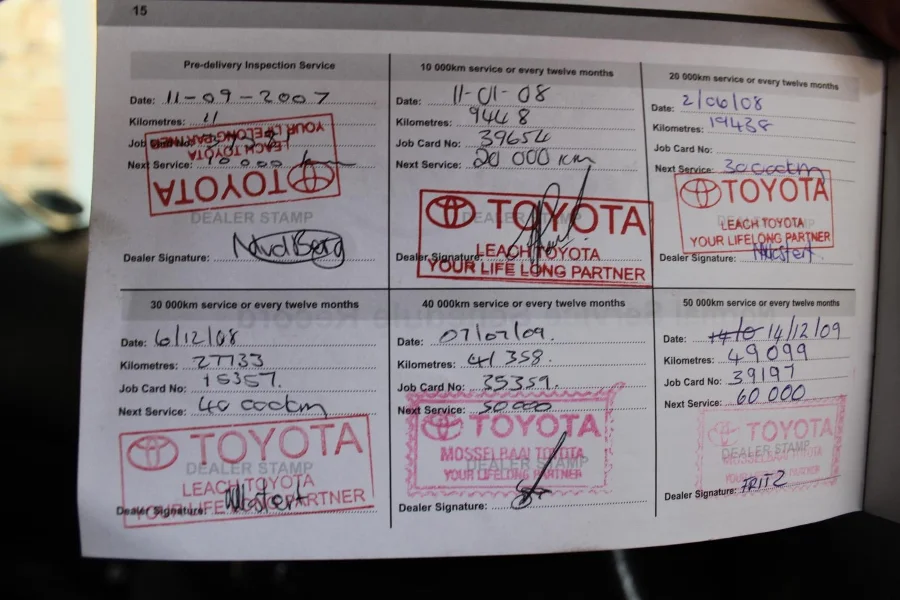 15
Pre-delivery Inspection Service
Date: 11-09-2007
Kilometres: 21
Job Card No:
Next Service: 10 000 km
TOYOTA
LEACH TOYOTA
YOUR LIFELONG PARTNER
DEALER STAMP
Dealer Signature: NvdBerg
10 000km service or every twelve months
Date: 11-01-08
Kilometres: 9448
Job Card No: 39654
Next Service: 20 000 km
DEALER STAMP
TOYOTA
LEACH TOYOTA
YOUR LIFE LONG PARTNER
Dealer Signature:
20 000km service or every twelve months
Date: 2/06/08
Kilometres: 19438
Job Card No:
Next Service: 30 000km
TOYOTA
DEALER STAMP
LEACH TOYOTA
YOUR LIFELONG PARTNER
Dealer Signature:
30 000km service or every twelve months
Date: 6/12/08
Kilometres: 27733
Job Card No: 15357.
Next Service: 40 000km
TOYOTA
DEALER STAMP
LEACH TOYOTA
YOUR LIFELONG PARTNER
Dealer Signature:
40 000km service or every twelve months
Date: 07/07/09.
Kilometres: 41 358.
Job Card No: 35359.
Next Service: 50 000
TOYOTA
MOSSELBAAI TOYOTA
DEALER STAMP
YOUR LIFELONG PARTNER
Dealer Signature:
50 000km service or every twelve months
Date: 14/12/09
Kilometres: 49 099
Job Card No: 39197
Next Service: 60 000
TOYOTA
DEALER STAMP
MOSSELBAAI TOYOTA
YOUR LIFELONG PARTNER
Dealer Signature: FRITZ